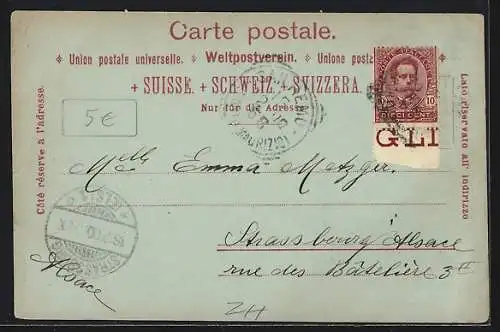 Carte postale.
Union postale universelle. Weltpostverein. Unione postale
+ SUISSE. + SCHWEIZ. + SVIZZERA. +
Nur für die Adresse
Côté réservé à l'adresse.
Lato riservato all' indirizzo
10 10
DIECI CENT
GLI
5€
Melle Emma Metzger.
Strassbourg Alsace
rue des Bâtelière 3II
Alsace
ZH